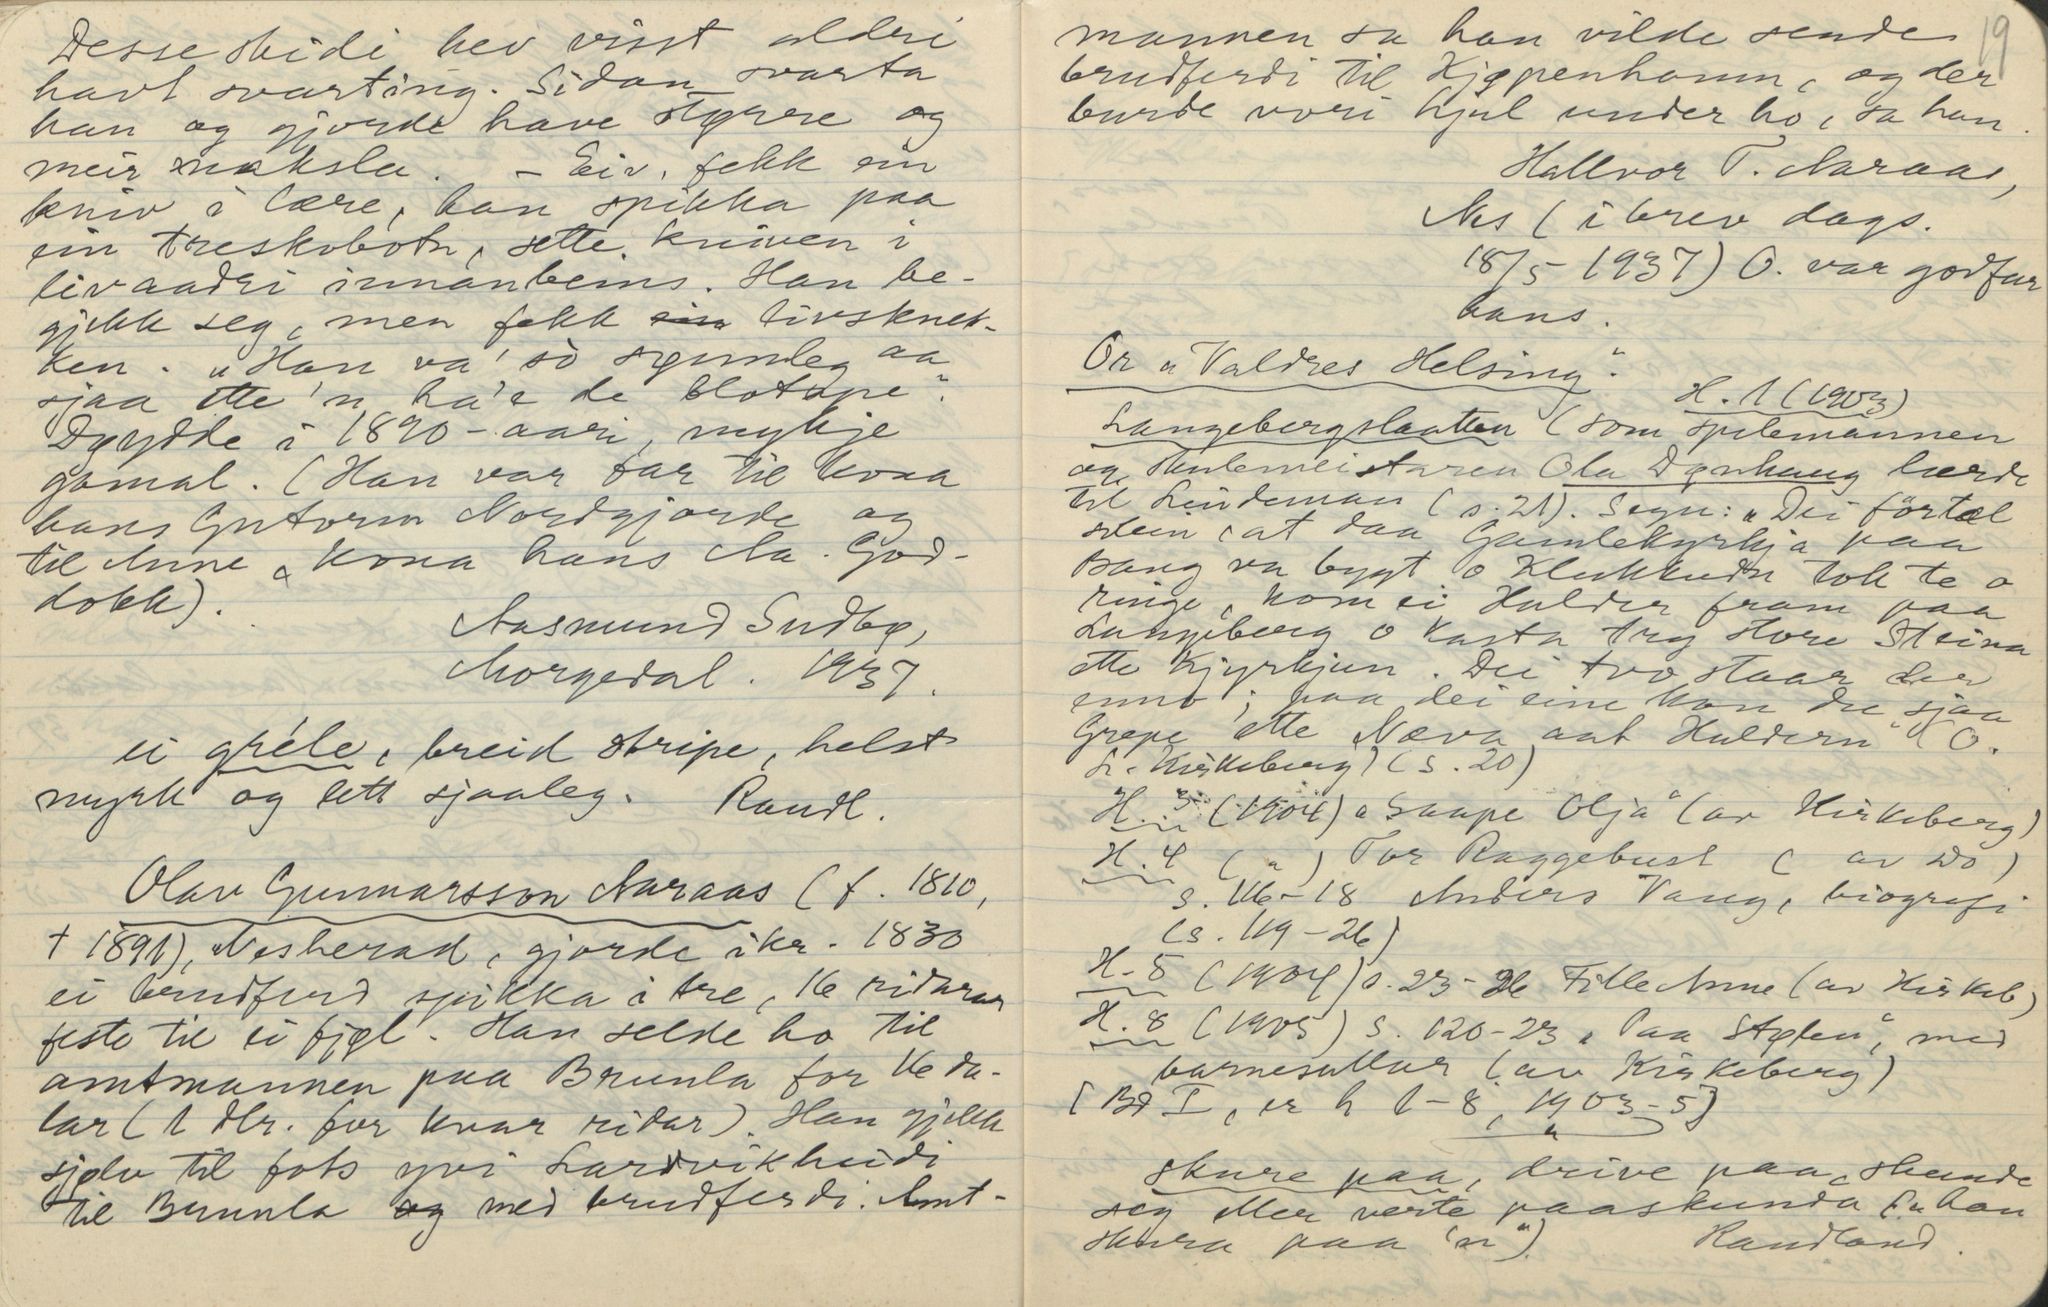 Desse skidi hev visst aldri
havt svarting. Sidan svarta
han og gjorde have større og
meir naksla. – Eiv. fekk ein
kniv i lære, han spikka paa
ein treskobotn, sette kniven i
livaadri innanbeins. Han be-
gjekk seg, men fekk ein livsknek-
ken. „Han va' so sørmleg aa
sjaa ette 'n ha'e de blotape".
Døydde i 1890-aari, mykje
gamal. (Han var far til kona
hans Gutorm Nordgjorde og
til Anne, kona hans Aa. God-
dokk).
Aasmund Sudbø,
Morgedal. 1937.
ei gréle, breid stripe, helst
myrk og lett sjaaleg. Raudl.
Olav Gunnarsson Aaraas (f. 1810,
† 1891), Nesherad, gjorde ikr. 1830
ei brudferd spikka i tre, 16 ridarar
feste til ei fjøl. Han selde ho til
amtmannen paa Brunla for 16 da-
lar (1 dlr. for kvar ridar). Han gjekk
sjølv til fots yvi Lardvikheidi
til Brunla og med brudferdi. Amt-
19
mannen sa han vilde sende
brudferdi til Kjøpenhamn, og der
burde vori hjul under ho, sa han.
Hallvor T. Aaraas,
Nes (i brev dags.
18/5-1937) O. var godfar
hans.
Or „Valdres Helsing".
H. 1 (1903)
Langebergslaatten (som spelemannen
og skulemeistaren Ola Dønhaug lærde
til Lindeman (s. 21). Segn: „Dei fortæl
stein, at daa Gamlekyrkja paa
Vang va bygt o Klukkudn tok te o
ringe, kom ei Hulder fram paa
Langeberg o kasta try store Steina
ette Kjyrkjun. Dei tvo staar der
enno; paa dei eine kan du sjaa
Grepe ette Næva aat Huldern" (O.
L. Kirkeberg) (s. 20)
H. 3 (1904) „Saape Olja" (av Kirkeberg)
H. 4 ( „ ) Tor Raggebust ( av Do )
s. 116-18 Anders Vang, biografi
(s. 119-26)
H. 5 (1904) s. 23-26 Fille Anne (av Kirkeb)
H. 8 (1905) s. 120-23 „Paa Stølen", med
barnesullar (av Kirkeberg)
[Bd I, er h 1-8, 1903-5]
skure paa, drive paa, skunde
seg eller verte paaskunda („han
skura paa 'n"). Raudland.